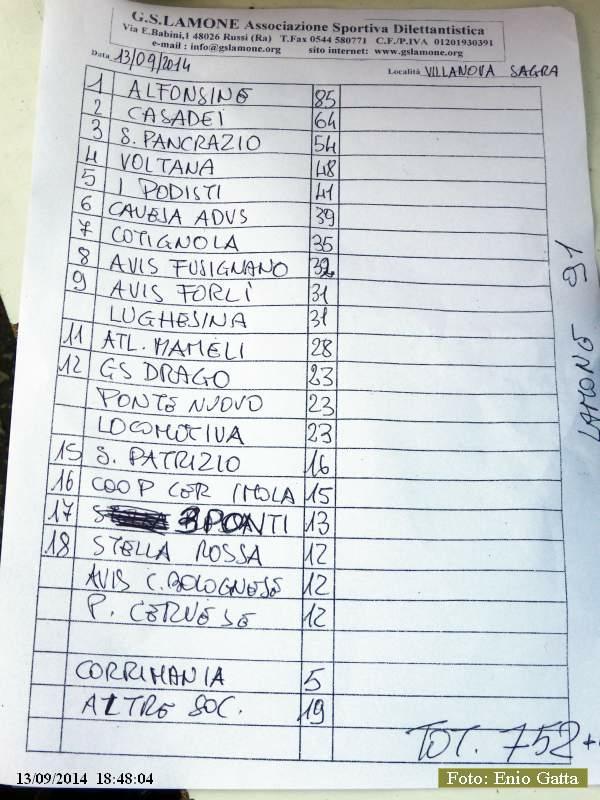 G.S.LAMONE Associazione Sportiva Dilettantistica
Via E.Babini,1 48026 Russi (Ra) T.Fax 0544 580771 C.F./P.IVA 01201930391
e-mail : info@gslamone.org sito internet: www.gslamone.org
Data 13/09/2014 Località VILLANOVA SAGRA
1 ALFONSINE 85
2 CASADEI 64
3 S. PANCRAZIO 54
4 VOLTANA 48
5 I PODISTI 41
6 CAVEJA ADVS 39
7 COTIGNOLA 35
8 AVIS FUSIGNANO 32
9 AVIS FORLÌ 31
LUGHESINA 31
11 ATL. MAMELI 28
12 GS DRAGO 23
PONTE NUOVO 23
LOCOMOTIVA 23
15 S. PATRIZIO 16
16 COOP CER IMOLA 15
17 3PONTI 13
18 STELLA ROSSA 12
AVIS C. BOLOGNESE 12
P. CERVESE 12
CORRIMANIA 5
ALTRE SOC. 19
LAMONE 91
TOT. 752 +
13/09/2014 18:48:04
Foto: Enio Gatta